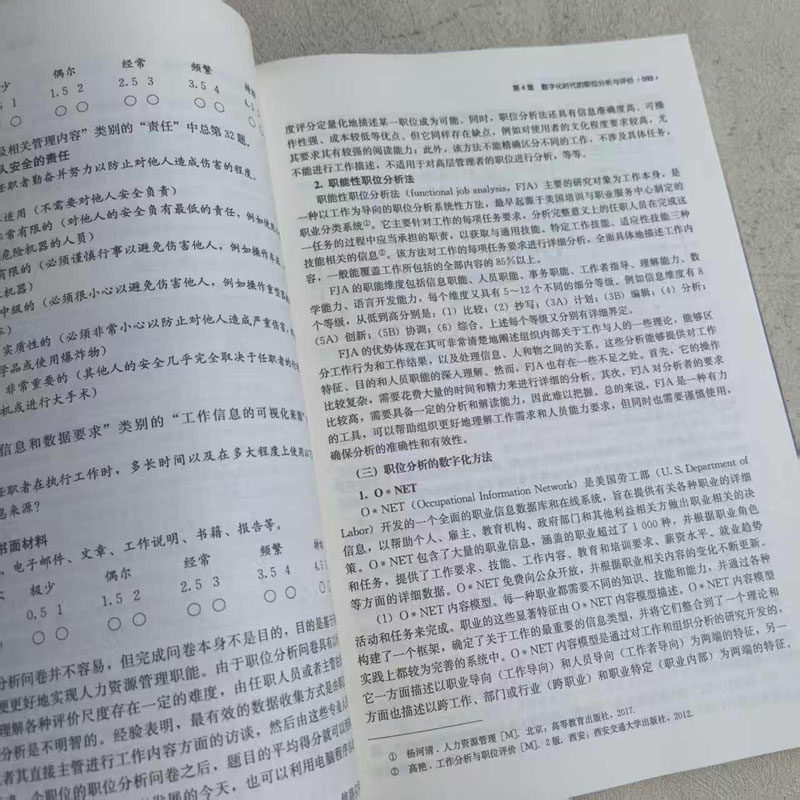 极少 偶尔 经常 频繁
5 1 1.5 2 2.5 3 3.5 4
相关管理内容”类别的“责任”中总第32题，
人安全的责任
任职者勤奋并努力以防止对他人造成伤害的程度，
适用（不需要对他人安全负责）
常有限的（对他人的安全负有最低的责任，例如
危险机器的人员）
有限的（必须谨慎行事以避免伤害他人，例如操作
机器）
中级的（必须很小心以避免伤害他人，例如操作重型
实质性的（必须非常小心以防止对他人造成严重伤害，
学品或使用爆炸物）
非常重要的（其他人的安全几乎完全取决于任职者的
机或进行大手术）
信息和数据要求”类别的“工作信息的可视化来源”
任职者在执行工作时，多长时间以及在多大程度上使用
息来源？
书面材料
，电子邮件、文章、工作说明、书籍、报告等，
极少 偶尔 经常 频繁
0.5 1 1.5 2 2.5 3 3.5 4
分析问卷并不容易，但完成问卷本身不是目的，目的是基于
便更好地实现人力资源管理职能。由于职位分析问卷具有
理解各种评价尺度存在一定的难度，由任职人员或者主管
分析是不明智的。经验表明，最有效的数据收集方式是由
者其直接主管进行工作内容方面的访谈，然后由这些专业人
个职位的职位分析问卷之后，题目的平均得分就可以
发展的今天，也可以利用电脑程序
第4章 数字化时代的职位分析与评价 093
度评分定量化地描述某一职位成为可能。同时，职位分析法还具有信息准确度高、可操
作性强、成本较低等优点。但它同样存在缺点，例如对使用者的文化程度要求较高，尤
其要求其有较强的阅读能力；此外，该方法不能精确区分不同的工作，不涉及具体任务，
不能进行工作描述，不适用于对高层管理者的职位进行分析，等等。
2. 职能性职位分析法
职能性职位分析法（functional job analysis，FJA）主要的研究对象为工作本身，是
一种以工作为导向的职位分析系统性方法，最早起源于美国培训与职业服务中心制定的
职业分类系统①。它主要针对工作的每项任务要求，分析完整意义上的任职人员在完成这
一任务的过程中应当承担的职责，以获取与通用技能、特定工作技能、适应性技能三种
技能相关的信息②。该方法对工作的每项任务要求进行详细分析，全面具体地描述工作内
容，一般能覆盖工作所包括的全部内容的85%以上。
FJA的职能维度包括信息职能、人员职能、事务职能、工作者指导、理解能力、数
学能力、语言开发能力，每个维度又具有5～12个不同的细分等级。例如信息维度有8
个等级，从低到高分别是：（1）比较；（2）抄写；（3A）计划；（3B）编辑；（4）分析；
（5A）创新；（5B）协调；（6）综合。上述每个等级又分别有详细界定。
FJA的优势体现在其可非常清楚地阐述组织内部关于工作与人的一些理论，能够区
分工作行为和工作结果，以及处理信息、人和物之间的关系。这些分析能够提供对工作
特征、目的和人员职能的深入理解。然而，FJA也存在一些不足之处。首先，它的操作
比较复杂，需要花费大量的时间和精力来进行详细的分析。其次，FJA对分析者的要求
比较高，需要具备一定的分析和解读能力，因此难以把握。总的来说，FJA是一种有力
的工具，可以帮助组织更好地理解工作需求和人员能力要求，但同时也需要谨慎使用，
确保分析的准确性和有效性。
（三）职位分析的数字化方法
1. O*NET
O*NET（Occupational Information Network）是美国劳工部（U. S. Department of
Labor）开发的一个全面的职业信息数据库和在线系统，旨在提供有关各种职业的详细
信息，以帮助个人、雇主、教育机构、政府部门和其他利益相关方做出职业相关的决
策。O*NET包含了大量的职业信息，涵盖的职业超过了1 000种，并根据职业角色
和任务，提供了工作要求、技能、工作内容、教育和培训要求、薪资水平、就业趋势
等方面的详细数据。O*NET免费向公众开放，并根据职业相关内容的变化不断更新。
（1）O*NET内容模型。每一种职业都需要不同的知识、技能和能力，并通过各种
活动和任务来完成。职业的这些显著特征由O*NET内容模型描述。O*NET内容模型
构建了一个框架，确定了关于工作的最重要的信息类型，并将它们整合到了一个理论和
实践上都较为完善的系统中。O*NET内容模型是通过对工作和组织分析的研究开发的，
它一方面描述以职业导向（工作导向）和人员导向（工作者导向）为两端的特征，另一
方面也描述以跨工作、部门或行业（跨职业）和职业特定（职业内部）为两端的特征。
① 杨河清. 人力资源管理 [M]. 北京：高等教育出版社，2017.
② 高艳. 工作分析与职位评价 [M]. 2版. 西安：西安交通大学出版社，2012.